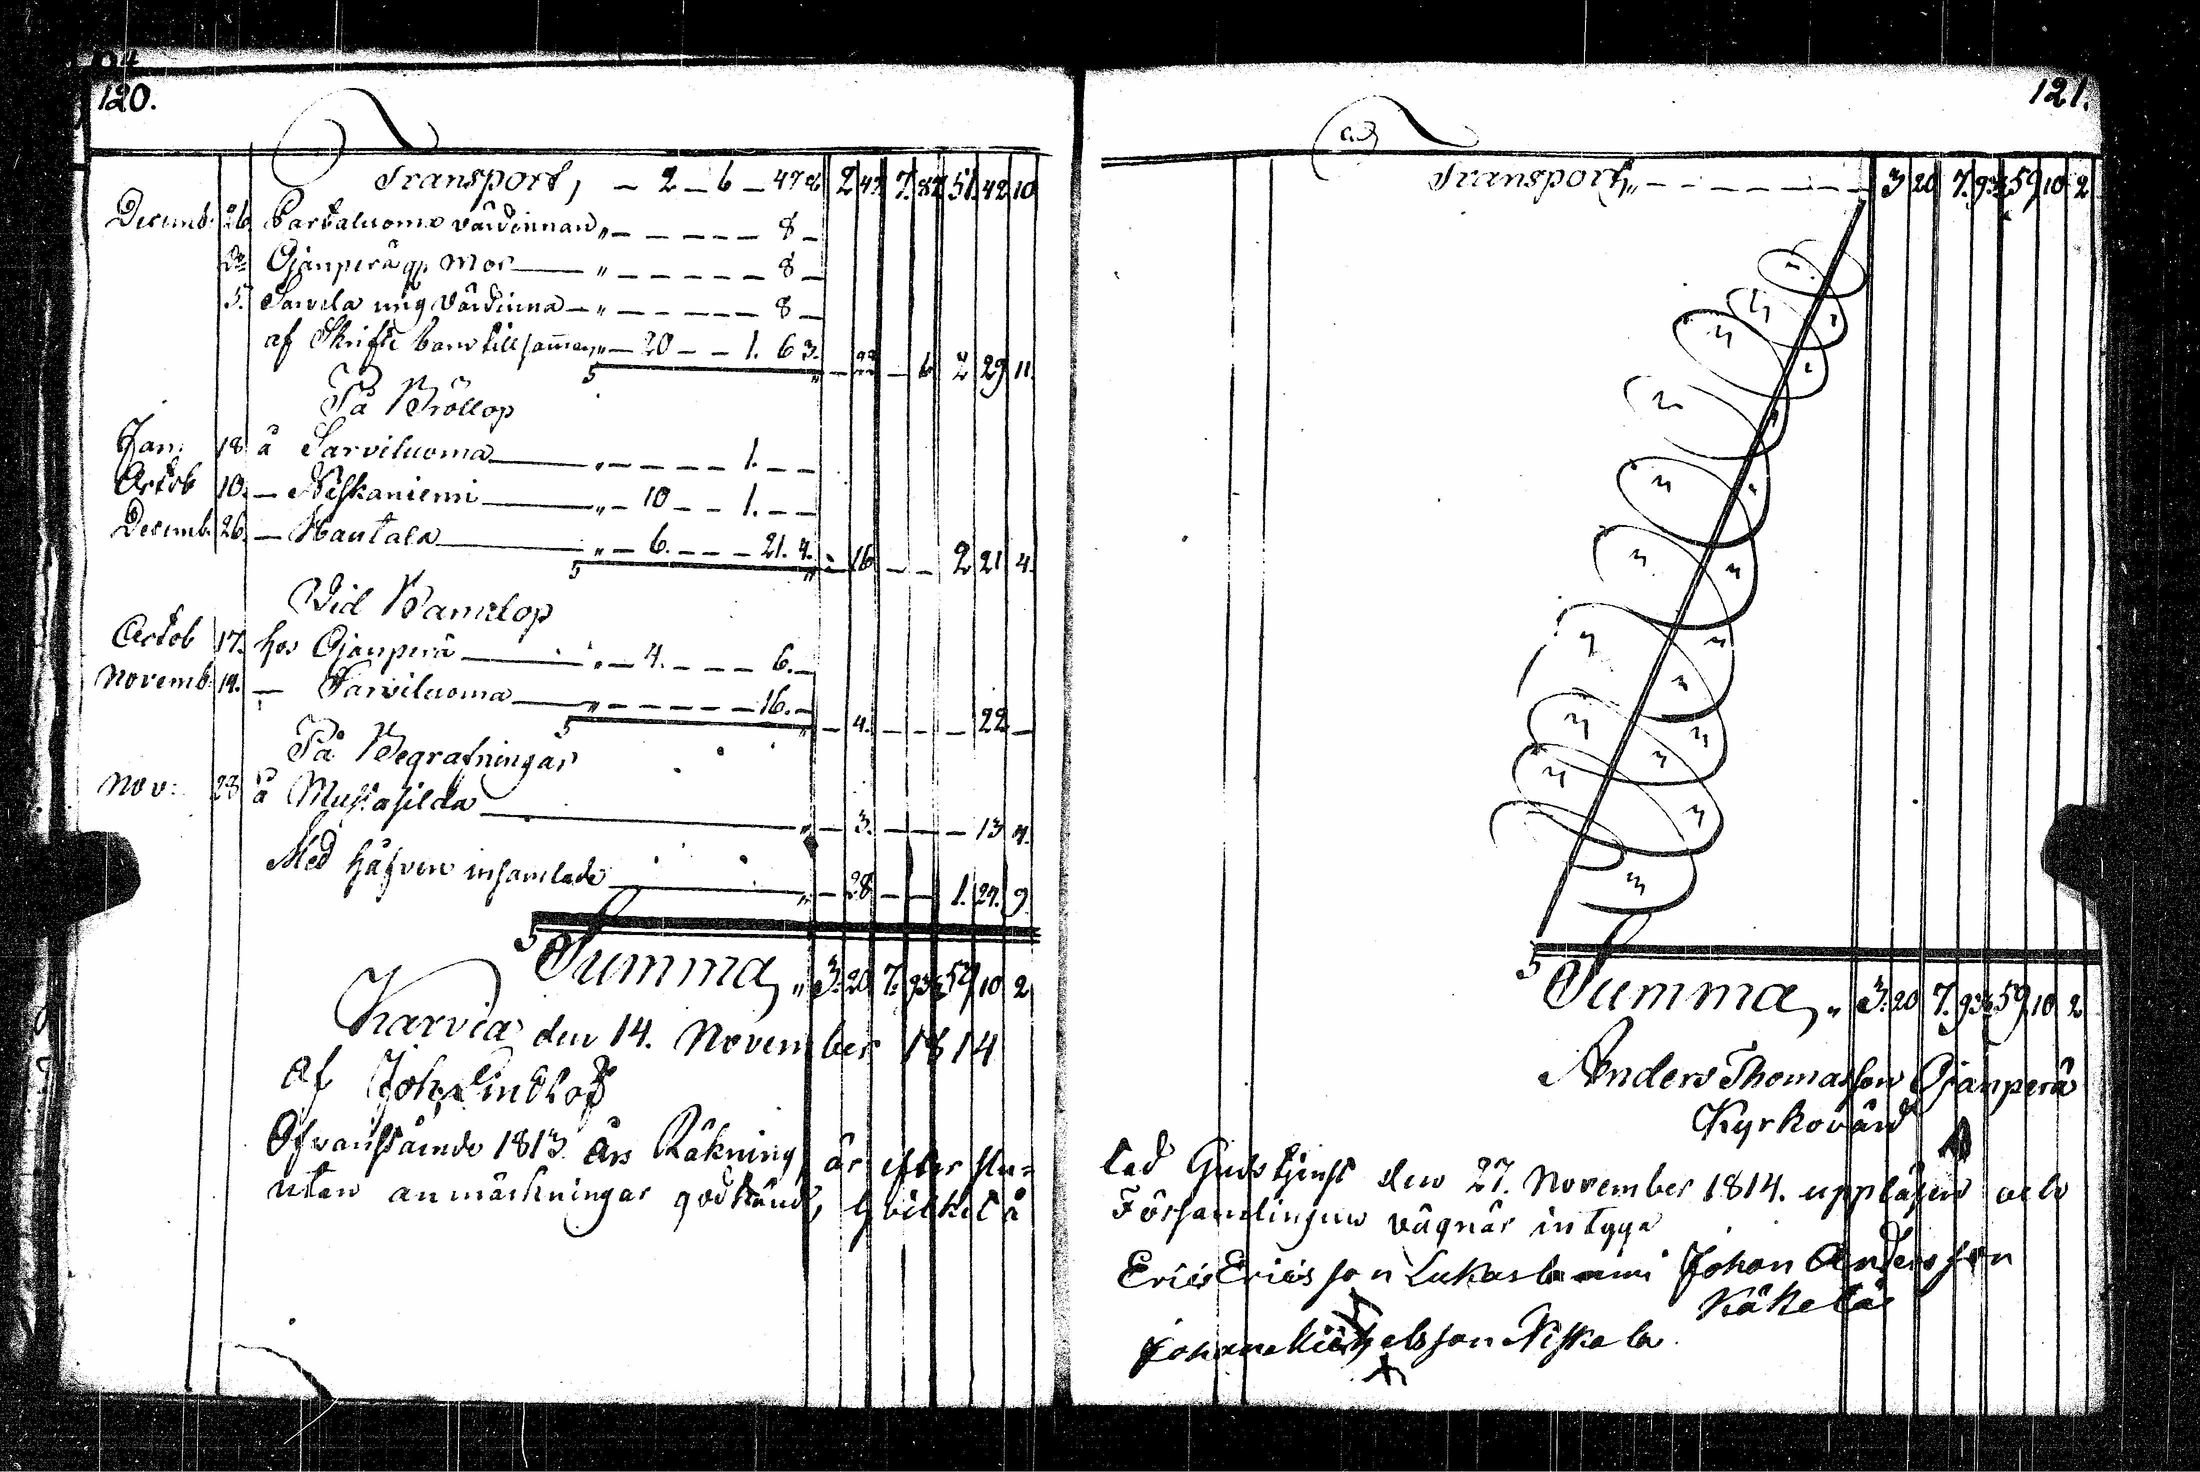 120.
Transport, — 2 — 6 — 47 2 47 7. 87 51. 42 10
Decemb: 26 Partaluoma värdinnan „ — — — — — 8 —
Do Ojanperä gl. Mor — „ — — — — — 8 —
5. Sarvela ung Värdinna — „ — — — — — 8 —
af Skrifte barn tillsamman „ — 20 — — 1. 6 3. 6 2 29 11.
På Bröllop
Jan: 18 å Sarviluoma — „ — — — — 1. — —
Octob 10. — Niskaniemi — „ — 10 — — 1. — —
Decemb. 26. — Hautala — „ — 6. — — — 21. 4. — 16 — — 2 21 4.
Vid Barnslop
Octob 17. hos Ojanperä — „ — 4. — — — 6. —
Novemb: 14. — Sarviluoma — „ — — — — — 16. — — 4. — — — 22 —
På Begrafningar
Nov: 28 å Mustasilda — „ — 3. — — — 13 4.
Med häfven insamlade — „ — 28 — — 1. 27. 9.
Summa, „ 3. 20 7. 93 59 10 2
Karvia den 14. November 1814
af Joh. Lindlöf
Ofvanstående 1813 års Räkning, är efter slu-
utan anmärkningar godkänd, hvilket å
121.
Transport, „ — — — — — — 3 20 7. 93 59 10 2
Summa, „ 3. 20 7. 93 59. 10 2
Anders Thomasson Ojanperä
Kyrkovärd
tad Gudstjenst den 27. November 1814. uppläsen och
Församlingens vägnar intyga
Eric Ericsson Lukaslammi Johan Andersson
Käkelä
Johan Michelsson Niskala